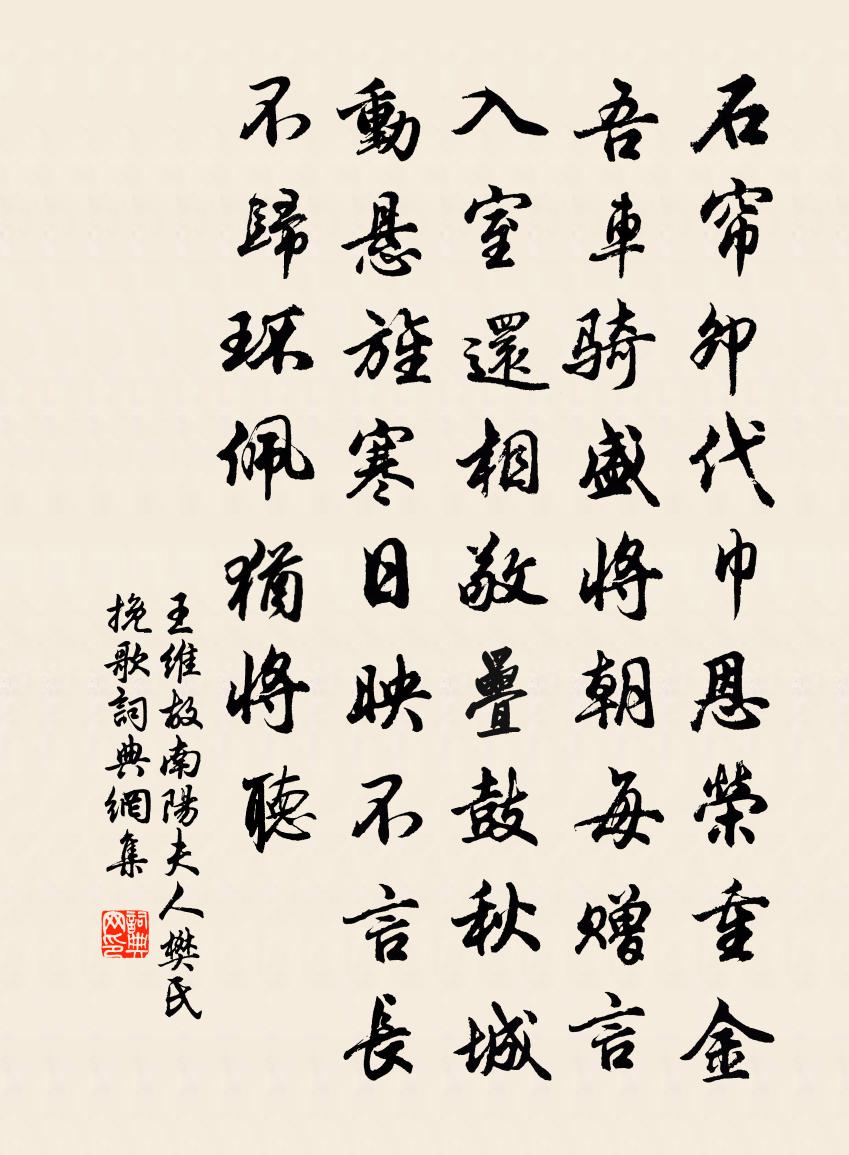 石帘卯代巾恩榮重金
吾車騎盛將朝每贈言
入室還相敬疊鼓秋城
動悬旌寒日映不言長
不歸环佩猶將聽
王維故南陽夫人樊氏
挽歌詞典網集
詞典
网印